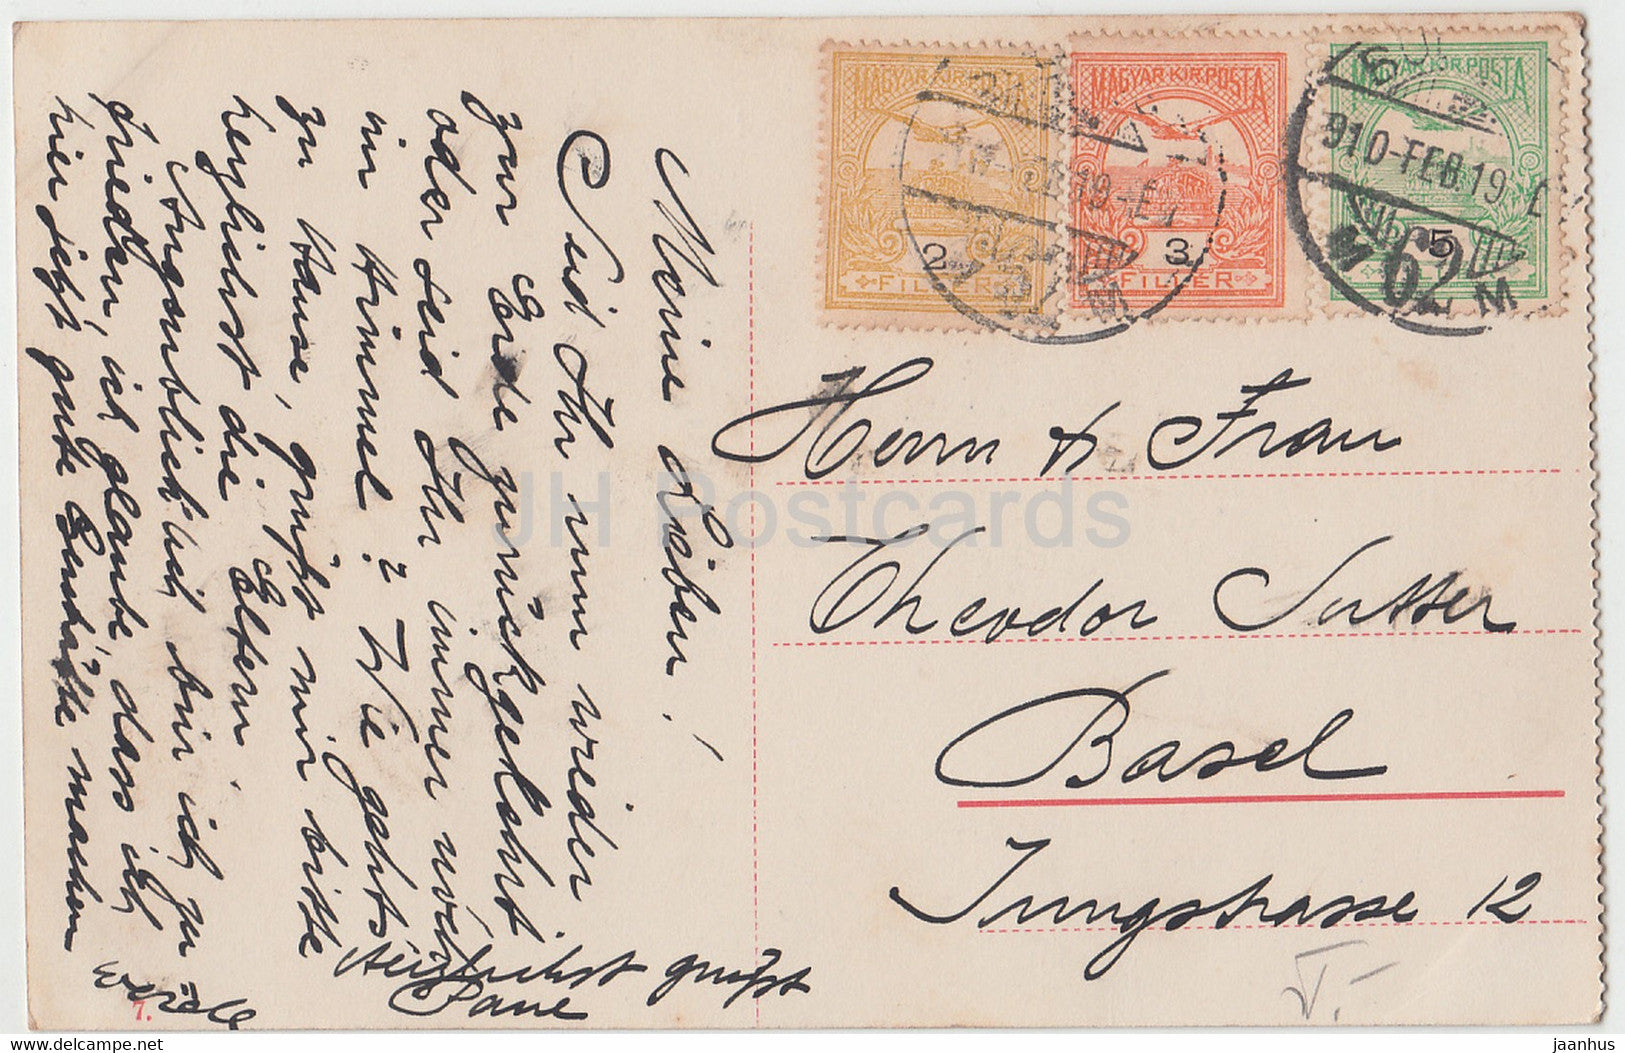 Meine Lieben!
Seid Ihr nun wieder
zur Erde zurückgekehrt
oder seid Ihr immer noch
im Himmel? Wie gehts
zu Hause, grüsst mir bitte
herzlichst die Eltern.
Augenblicklich bin ich zu-
frieden, ich glaube, dass ich
hier jetzt gute Einkäufe machen
werde
Herzlichst grüsst
MAGYAR KIR. POSTA
2
FILLÉR
MAGYAR KIR. POSTA
3
FILLÉR
MAGYAR KIR. POSTA
5
910-FEB.19
62
M
Herrn & Frau
Theodor Sutter
Basel
Jungstrasse 12
7.
JH Postcards
delcampe.net
jaanhus